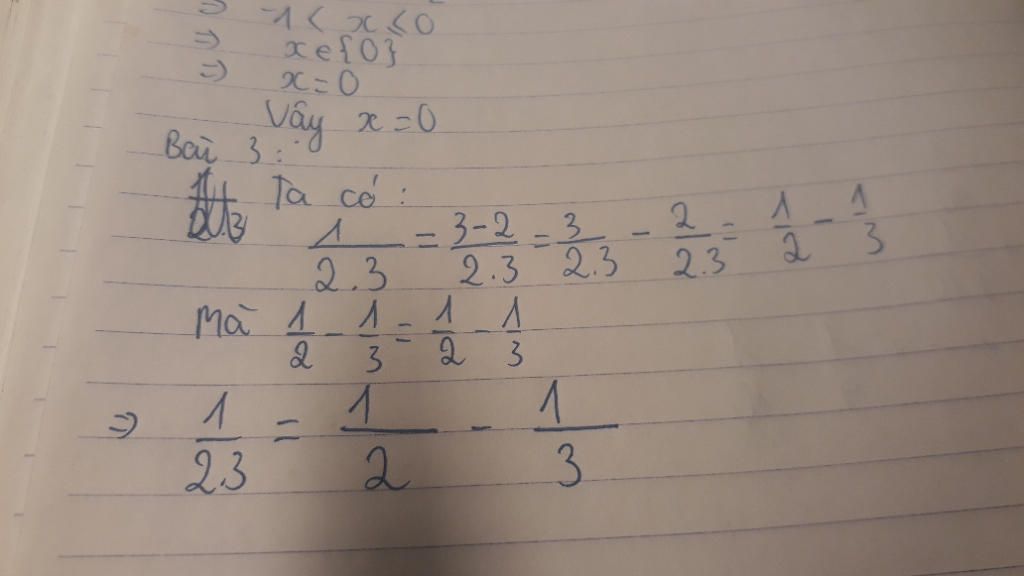 ⇒ -1 < x ≤ 0
⇒ x ∈ {0}
⇒ x = 0
Vậy x = 0
Bài 3:
Ta có:
1/2.3 = 3-2/2.3 = 3/2.3 - 2/2.3 = 1/2 - 1/3
Mà 1/2 - 1/3 = 1/2 - 1/3
⇒ 1/2.3 = 1/2 - 1/3